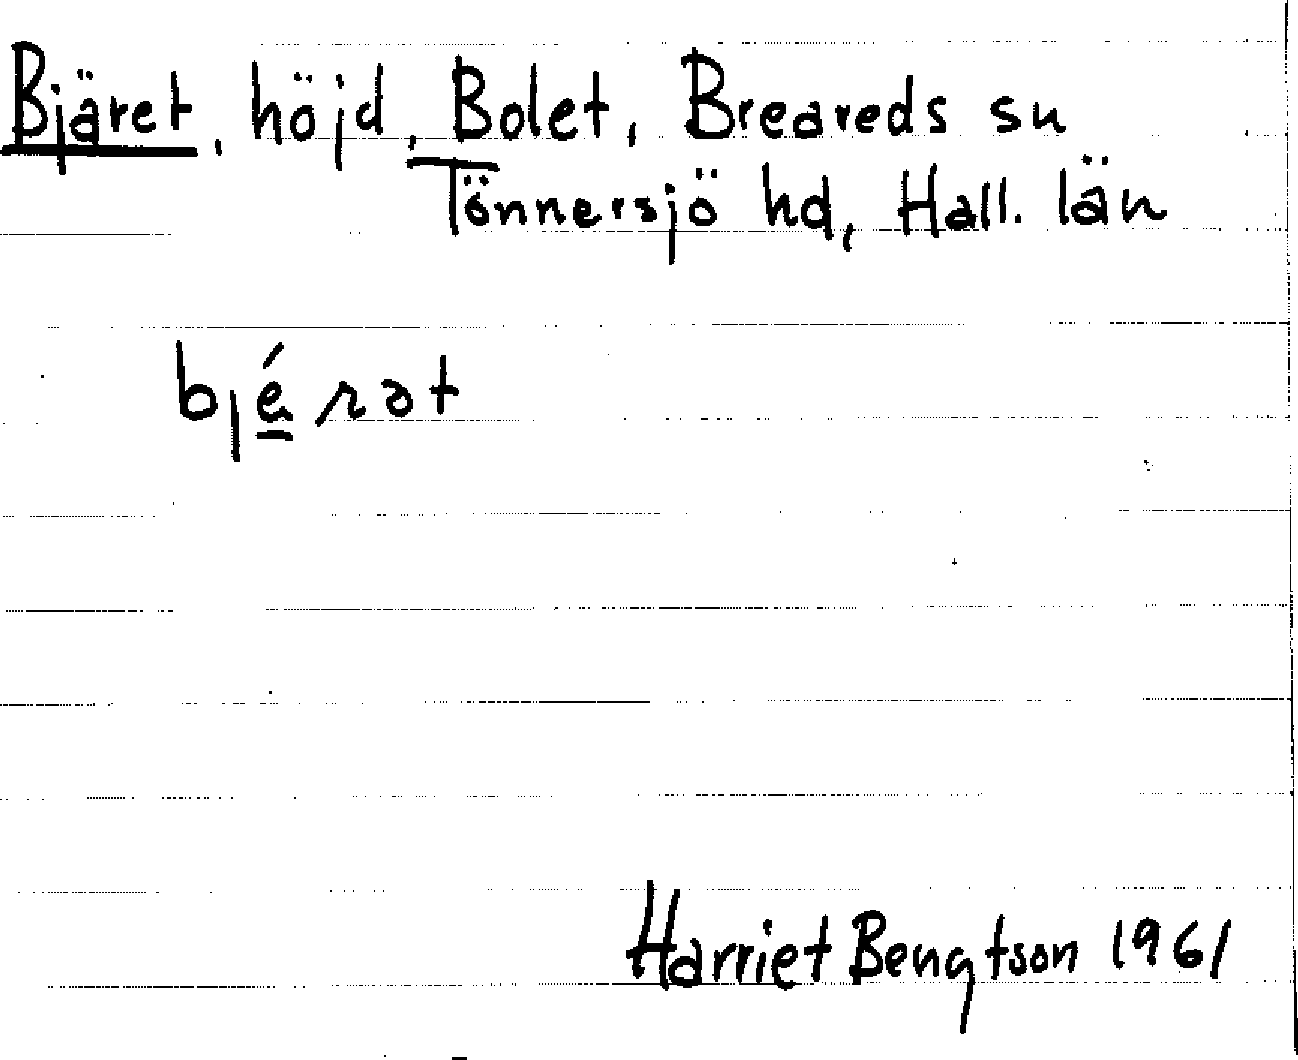 Bjäret, höjd, Bolet, Breareds sn
Tönnersjö hd, Hall. län
bjé̱rət
Harriet Bengtson 1961